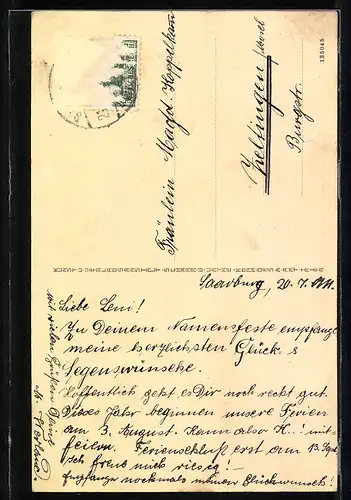 Fräulein Magd. Hoppelkam
Zeltingen /Mosel
Burgstr.
135045
Saarburg, 20.7.
Liebe Leni!
Zu Deinem Namensfeste empfange
meine herzlichsten Glück &
Segenswünsche.
Hoffentlich geht es Dir noch recht gut.
Dieses Jahr beginnen unsere Ferien
am 3. August. Kann also K.! mit
feiern. Ferienschluß erst am 13. Sept
Ich freue mich riesig!
Empfange nochmals meinen Glückwunsch!
mit vielen Grüßen